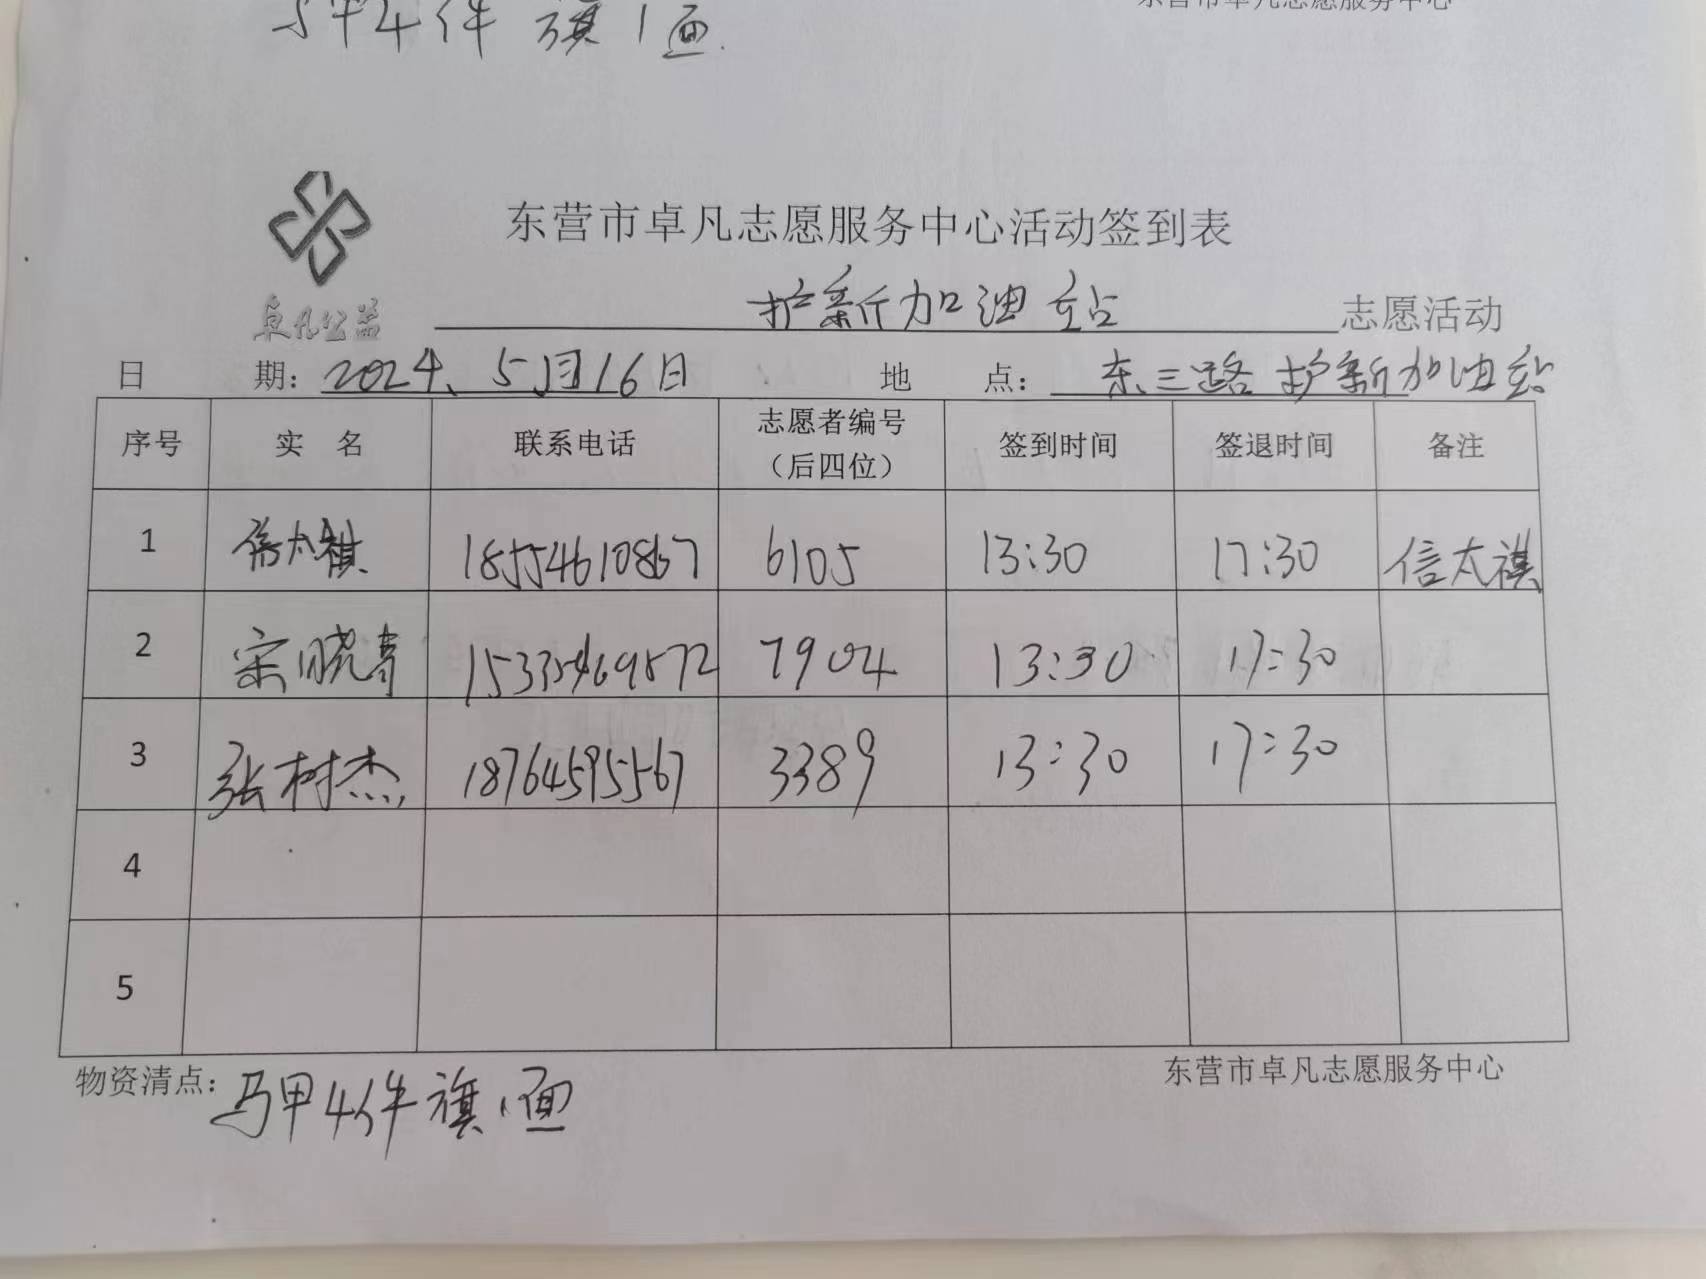 马甲4件 旗1面
东营市卓凡志愿服务中心
东营市卓凡志愿服务中心活动签到表
卓凡公益
护新加油站 志愿活动
日 期：2024、5月16日 地 点：东三路护新加油站
序号 实 名 联系电话 志愿者编号（后四位） 签到时间 签退时间 备注
1 信太祺 18554610867 6105 13:30 17:30 信太祺
2 宋晓青 7904 13:30 17:30
3 张树杰 18764595567 3389 13:30 17:30
4
5
物资清点：马甲4件旗1面
东营市卓凡志愿服务中心